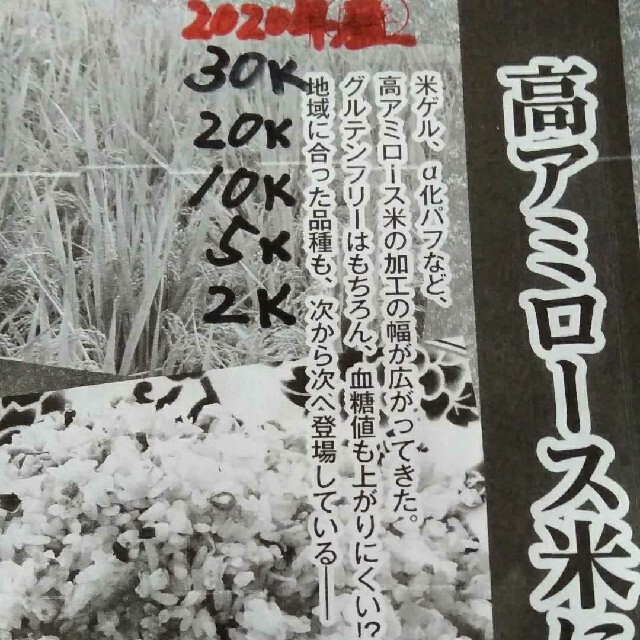 高アミロース米に
米ゲル、α化パフなど、
高アミロース米の加工の幅が広がってきた。
グルテンフリーはもちろん、血糖値も上がりにくい!?
地域に合った品種も、次から次へ登場している──
2020年
30K
20K
10K
5K
2K